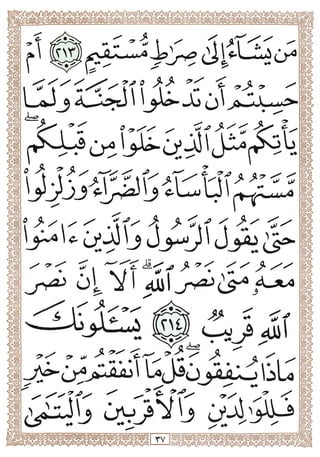 مَن يَشَآءُ إِلَىٰ صِرَٰطٍ مُّسْتَقِيمٍ ٢١٣ أَمْ
حَسِبْتُمْ أَن تَدْخُلُوا۟ ٱلْجَنَّةَ وَلَمَّا
يَأْتِكُم مَّثَلُ ٱلَّذِينَ خَلَوْا۟ مِن قَبْلِكُم ۖ
مَّسَّتْهُمُ ٱلْبَأْسَآءُ وَٱلضَّرَّآءُ وَزُلْزِلُوا۟
حَتَّىٰ يَقُولَ ٱلرَّسُولُ وَٱلَّذِينَ ءَامَنُوا۟
مَعَهُۥ مَتَىٰ نَصْرُ ٱللَّهِ ۗ أَلَآ إِنَّ نَصْرَ
ٱللَّهِ قَرِيبٌ ٢١٤ يَسْـَٔلُونَكَ
مَاذَا يُنفِقُونَ ۖ قُلْ مَآ أَنفَقْتُم مِّنْ خَيْرٍ
فَلِلْوَٰلِدَيْنِ وَٱلْأَقْرَبِينَ وَٱلْيَتَٰمَىٰ
٣٧